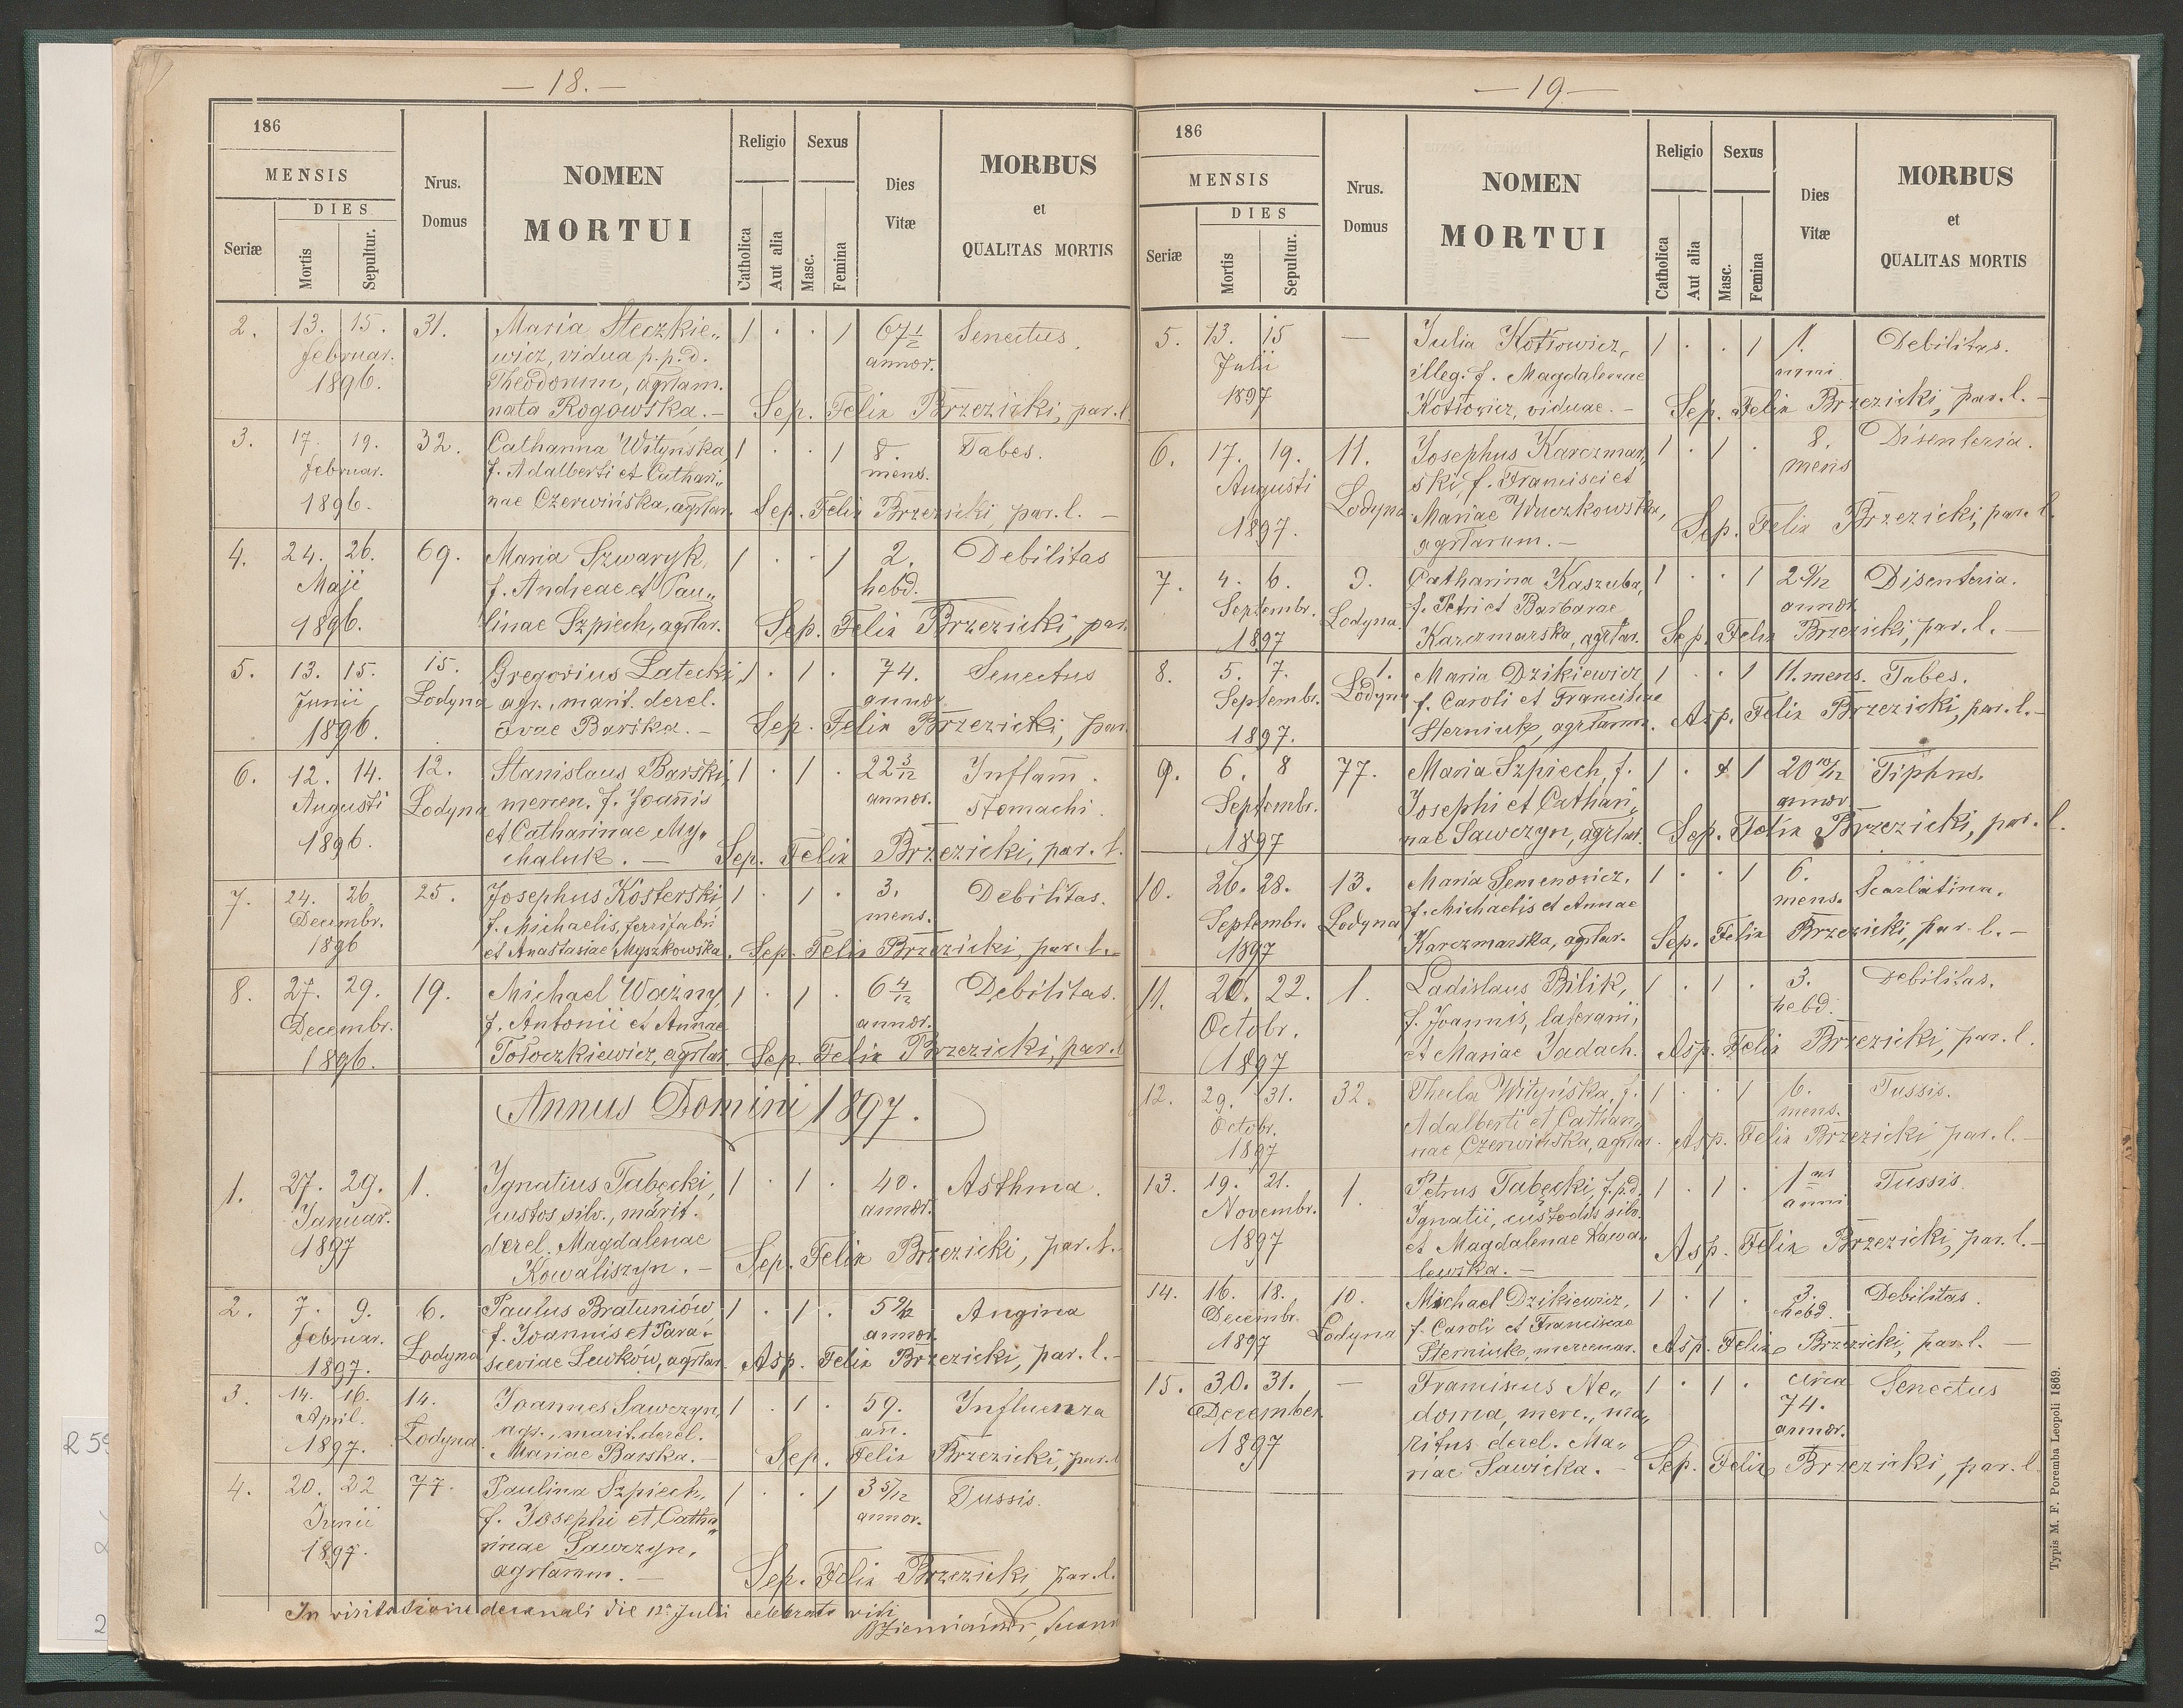 — 18. —
186
MENSIS
DIES
Seriæ
Mortis
Sepultur.
Nrus.
Domus
NOMEN
MORTUI
Religio
Sexus
Catholica
Aut alia
Masc.
Femina
Dies
Vitæ
MORBUS
et
QUALITAS MORTIS
2. 13. 15. 31. Maria Steczkie„ 1 . . 1 67 1/2 Senectus.
Februar. wicz, vidua p.p.d. annor.
1896. Theodorum, agrlam.
nata Rogowska. — Sep. Felix Brzezicki, par. l.
3. 17. 19. 32. Catharina Wityńska, 1 . . 1 8. Tabes.
Februar. f. Adalberti et Cathari„ mens.
1896. nae Czerwińska, agrlar. Sep. Felix Brzezicki par. l. —
4. 24. 26. 69. Maria Szwaryk, 1 . . 1 2. Debilitas
Maji f. Andreae et Pau„ hebd.
1896. linae Szpiech, agrlar. Sep. Felix Brzezicki, par.
5. 13. 15. 15. Gregorius Latecki, 1 . 1 . 74. Senectus
Junii Łodyna agr., marit. derel. annor.
1896. Evae Barska. — Sep. Felix Brzezicki, par.
6. 12. 14. 12. Stanislaus Barski, 1 . 1 . 22 3/12 Inflam̄.
Augusti Łodyna mercen. f. Joañis annor. stomachi.
1896. et Catharinae My„
chaluk. — Sep. Felix Brzezicki, par. l.
7. 24. 26. 25. Josephus Kosterski, 1 . 1 . 3. Debilitas.
Decembr. f. Michaelis, ferrifabri mens.
1896 et Anastasiae Myszkowska. Sep. Felix Brzezicki, par. l. —
8. 27. 29. 19. Michael Ważny, 1 . 1 . 6 4/12 Debilitas.
Decembr. f. Antonii et Annae annor.
1896. Tołoczkiewicz, agrlar. Sep. Felix Brzezicki, par. l
Annus Domini 1897.
1. 27. 29. 1. Ignatius Tabęcki, 1 . 1 . 40. Asthma.
Januar. custos silv., marit. annor.
1897 derel. Magdalenae
Kowaliszyn. — Sep. Felix Brzezicki, par. l. —
2. 7. 9. 6. Paulus Bratuniów 1 . 1 . Angina
Februar. Łodyna f. Joannis et Para„ annor.
1897. sceviae Lewków, agrlar. Asp. Felix Brzezicki, par. l. —
3. 14. 16. 14. Joannes Sawczyn, 1 . 1 . 59. Influenza
April. Łodyna agr., marit. derel. añ.
1897. Mariae Barska. — Sep. Felix Brzezicki, par. l
4. 20. 22 77. Paulina Szpiech, 1 . . 1 3 5/12 Tussis.
Junii f. Josephi et Catha„ annor.
1897. rinae Sawczyn,
agrlarum. — Sep. Felix Brzezicki, par. l.
In visitatione decanali die 12ª Julii celebrata vidi
— 19 —
186
MENSIS
DIES
Seriæ
Mortis
Sepultur.
Nrus.
Domus
NOMEN
MORTUI
Religio
Sexus
Catholica
Aut alia
Masc.
Femina
Dies
Vitæ
MORBUS
et
QUALITAS MORTIS
5. 13. 15 — Julia Kotłowicz, 1 . . 1 1. Debilitas.
Julii illeg. f. Magdalenae anni
1897 Kotłowicz, viduae. — Sep. Felix Brzezicki, par. l. —
6. 17. 19. 11. Josephus Karczmar„ 1 . 1 . 8. Disenteria.
Augusti Łodyna ski, f. Francisci et mens
1897. Mariae Wuczkowska,
agrlarum. — Sep. Felix Brzezicki, par. l.
7. 4. 6. 9. Catharina Kaszuba, 1 . . 1 2 9/12 Disenteria.
Septembr. Łodyna f. Petri et Barbarae annor.
1897 Karczmarska, agrlar. Sep. Felix Brzezicki, par. l. —
8. 5. 7. 1. Maria Dzikiewicz, 1 . . 1 11. mens. Tabes.
Septembr. Łodyna f. Caroli et Franciscae
1897. Sterniuk, agrlarum. Asp. Felix Brzezicki, par. l. —
9. 6. 8 77. Maria Szpiech, f. 1 . 1 20 10/12 Tiphus.
Septembr. Josephi et Cathari„ annor.
1897 nae Sawczyn, agrlar. Sep. Felix Brzezicki, par. l.
10. 26. 28. 13. Maria Semenowicz, 1 . . 1 6. Scarlatina.
Septembr. Łodyna f. Michaelis et Annae mens.
1897 Karczmarska, agrlar. Sep. Felix Brzezicki, par. l. —
11. 20. 22. 1. Ladislaus Bilik, 1 . 1 . 3. Debilitas.
Octobr. f. Joannis, laterarii, hebd.
1897 et Mariae Jadach. Asp. Felix Brzezicki, par. l.
12. 29. 31. 32. Thecla Wityńska, f. 1 . . 1 6. Tussis.
Octobr. Adalberti et Cathari„ mens.
1897 nae Czerwińska, agrlar. Asp. Felix Brzezicki par. l. —
13. 19. 21. 1. Petrus Tabęcki, f. p.d. 1 . 1 . 1 Tussis.
Novembr. Ignatii, custodis silv. anni
1897 et Magdalenae Kawa„
lewska. — Asp. Felix Brzezicki, par. l. —
14. 16. 18. 10. Michael Dzikiewicz, 1 . 1 . 3. Debilitas.
Decembr. Łodyna f. Caroli et Franciscae hebd.
1897 Sterniuk, mercenar. Asp. Felix Brzezicki, par. l. —
15. 30. 31. — Franciscus Ne„ 1 . 1 . circa Senectus
December. doma, merc., ma„ 74.
1897 ritus derel. Ma„ annor.
riae Sawicka. — Sep. Felix Brzezicki, par. l.
Typis M. F. Poremba Leopoli 1869.